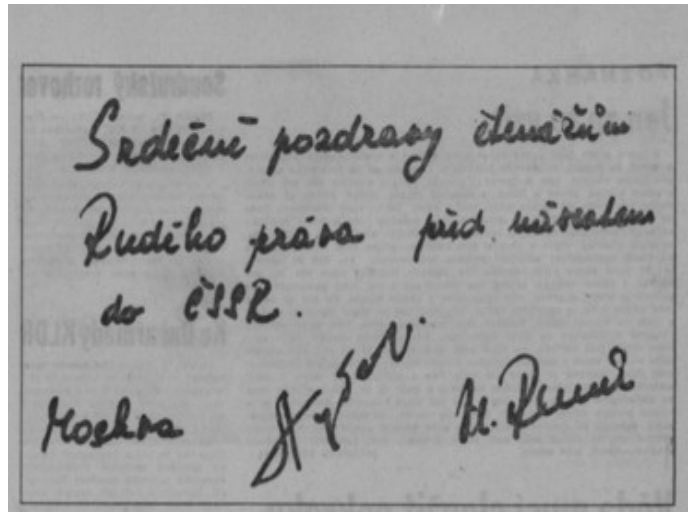 Srdečné pozdravy čtenářům
Rudého práva před návratem
do ČSSR.
Moskva